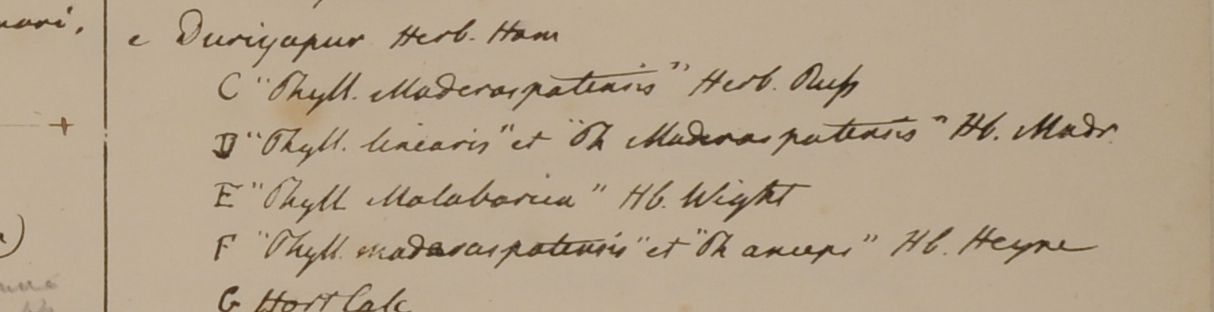 c Duriyapur Herb. Ham
C "Phyll. Maderaspatensis" Herb. Russ
D "Phyll. linearis" et "Ph Maderaspatensis" Hb. Madr.
E "Phyll Malabarica" Hb. Wight
F "Phyll. madaraspatensis" et "Ph anceps" Hb. Heyne
G Hort Calc